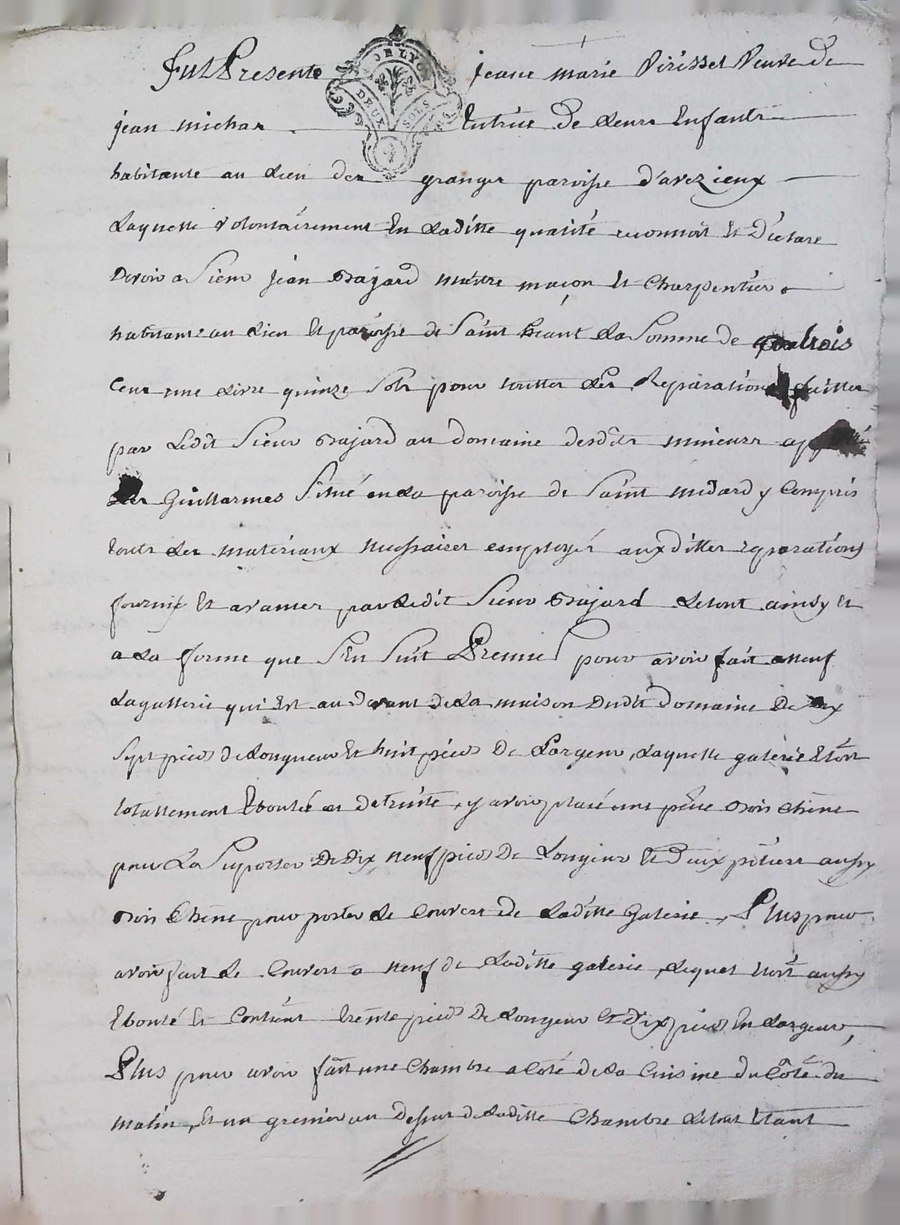 Fut Presente jeane marie Virisset Veuve de
DE LYON
DEUX SOLS
jean michar tutrice de Leurs Enfants
habitante au Lien des granges paroisse d'avezieux
Laquelle volontairement En Laditte qualité reconnoit Et Déclare
Devoir a Sieur jean Bajard maitre maçon Et Charpentier
habitant au Lieu Et paroisse de Saint heant La Somme de trois
Cens une Livre quinze Sols pour touttes Les Reparations faittes
par Ledit Sieur Bajard au domaine desdits mineurs
Les Guillarmes Situé en La paroisse de Saint medard y Compris
touts Les materiaux necessaires employés auxdittes reparations
fournis Et avancés par Ledit Sieur Bajard Letout ainsy Et
a La forme que S'En Suit Premier pour avoir fait a neuf
Lagallerie qui Est au devant de La maison Dudit Domaine De dix
Sept pieds de Longueur Et huit pieds De Largeur, Laquelle galerie Etoit
totallement Eboulée et detruite, y avoir placé une piece Bois Chene
pour La Suporter De Dix neuf pieds De Longeur Et deux piliers aussy
Bois Chêne pour porter Le Couvert de Laditte Galerie, Plus pour
avoir fait Le Couvert a neuf de Laditte galerie, Lequel Etoit aussy
Eboulé Et Contient trente pieds De Longeur Et Dix pieds En Largeur,
Plus pour avoir fait une Chambre a Coté de La Cuisine du Côté du
matin, Et un grenier au Dessus de Laditte Chambre Letout Etant